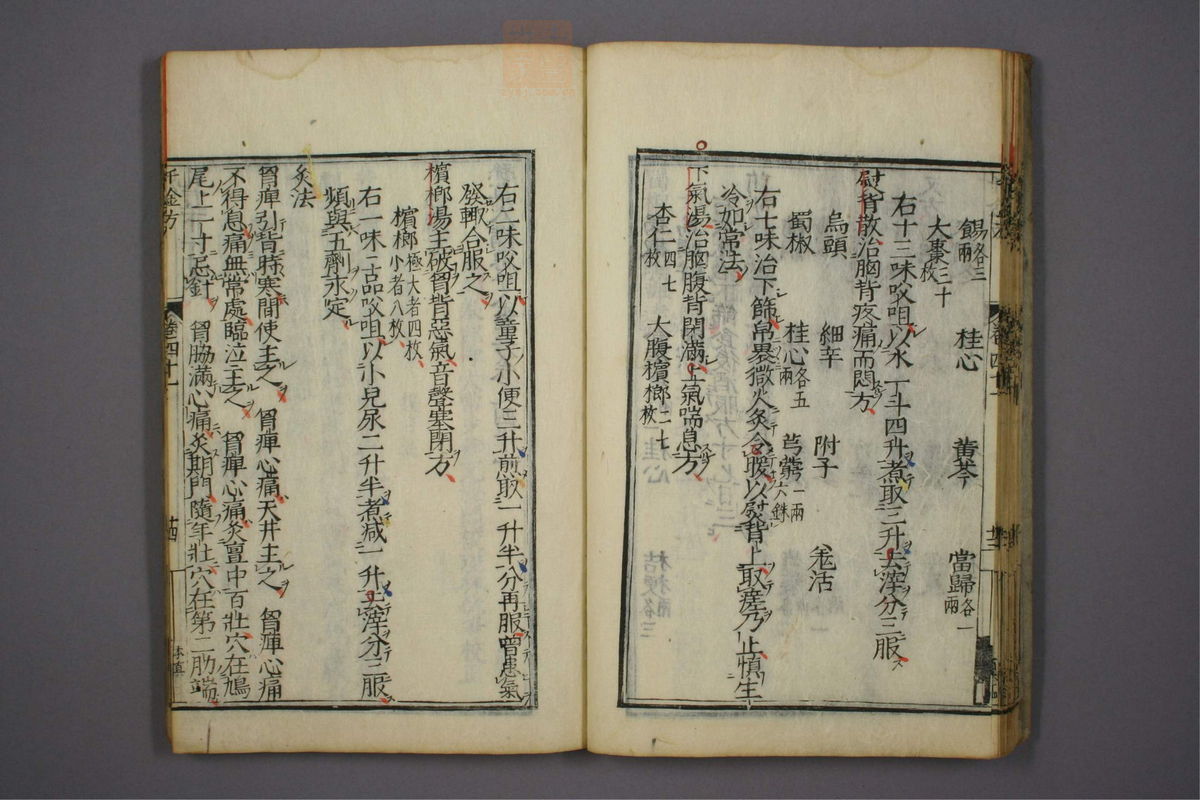 餳各三兩 桂心 黃芩 當歸各一兩
大棗三十枚
右十三味㕮咀以水一丁斗四升煮取三升去滓分三服
熨背散治胸背疼痛而悶方
烏頭 細辛 附子 羌活
蜀椒 桂心各五兩 芎藭一兩六銖
右七味治下篩帛褁微火炙令暖以熨背上取瘥乃止慎生
冷如常法
下氣湯治胸腹背閉滿上氣喘息方
杏仁四七枚 大腹檳榔二七枚
右二味㕮咀以童子小便三升煎取一升半分再服曾患氣
發輙合服之
檳榔湯主破胷背惡氣音聲塞閉方
檳榔極大者四枚小者八枚
右一味㕮咀以小兒尿二升半煮減一升去滓分三服
頻與五劑永定
灸法
胷痺引背時寒間使主之 胷痺心痛天井主之 胷痺心痛
不得息痛無常處臨泣主之 胷痺心痛灸亶中百壯穴在鳩
尾上一寸忌針 胷脇滿心痛灸期門隨年壯穴在第二肋端
千金方 卷四十一 廿四